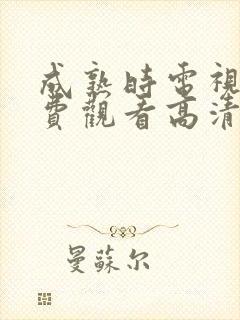 成熟時電視
費觀看高清
曼蘇尔